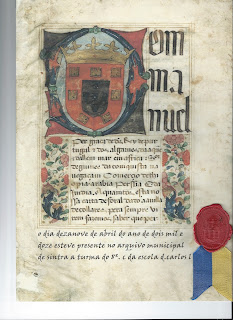 Dom
ma
nuel
Per graça de Rey de por
tugal e dos algarves
dallem mar em africa
de guinee da conquista na
vegaçam Comerçio
pia arabia Perssia E da
India. A quamtos esta nos
sa carta de foral dado aa villa
de collares. pera sempre
rem fazemos saber que per
o dia dezanove de abril do ano de dois mil e
doze esteve presente no arquivo municipal
de sintra a turma do 8º. c da escola d.carlos I